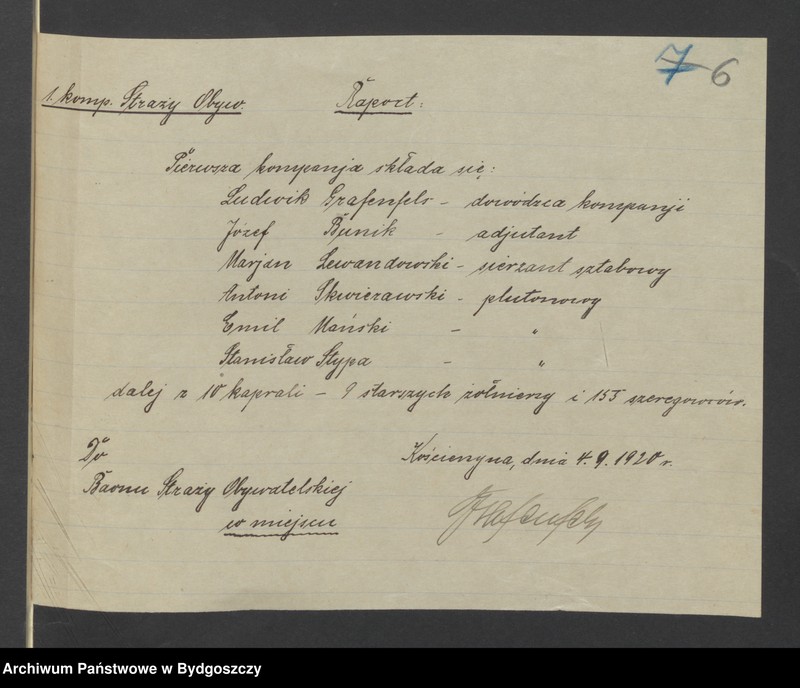 7 6
1. komp. Straży Obyw. Raport:
Pierwsza kompanja składa się:
Ludwik Grafenfels – dowódzca kompanji
Józef Bunik – adjutant
Marjan Lewandowski – sierżant sztabowy
Antoni Skwierawski – plutonowy
Emil Mański – "
Stanisław Stypa – "
dalej z 10 kaprali – 9 starszych żołnierzy i 155 szeregowców.
Do Kościerzyna, dnia 4. 9. 1920 r.
Baonu Straży Obywatelskiej
w miejscu Grafenfels
Archiwum Państwowe w Bydgoszczy